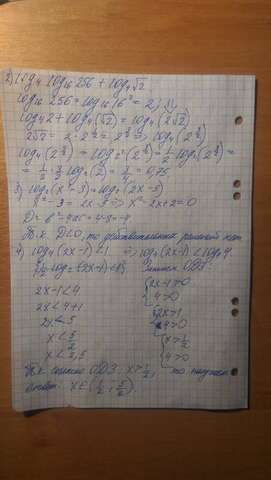 2) log₄ log₁₆ 256 + log₄ √2
log₁₆ 256 = log₁₆ 16² = 2
log₄ 2 + log₄ (√2) = log₄ (2√2)
2√2 = 2 · 2^(1/2) = 2^(3/2) ⇒ log₄ (2^(3/2))
log₄ (2^(3/2)) = log₂² (2^(3/2)) = 1/2 log₂ (2^(3/2)) =
= 1/2 · 3/2 log₂ (2) = 3/4 = 0,75
3) log₂ (x² - 3) = log₂ (2x - 5)
x² - 3 = 2x - 5 ⇒ x² - 2x + 2 = 0
D = b² - 4ac = 4 - 8 = -4
Т.к. D < 0, то действительных решений нет
4) log₄ (2x - 1) < 1 ⇒ log₄ (2x - 1) < log₄ 4
ОДЗ:
2x - 1 < 4 { 2x - 1 > 0 4 > 0
2x < 4 + 1
2x < 5 { 2x > 1 4 > 0
x < 5/2 { x > 1/2 4 > 0
x < 2,5
Т.к. согласно ОДЗ: x > 1/2, то получаем
ответ: x ∈ (1/2; 5/2).